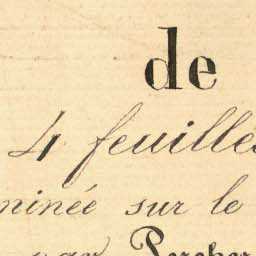 de
4 feuilles
minée sur le
par Percher